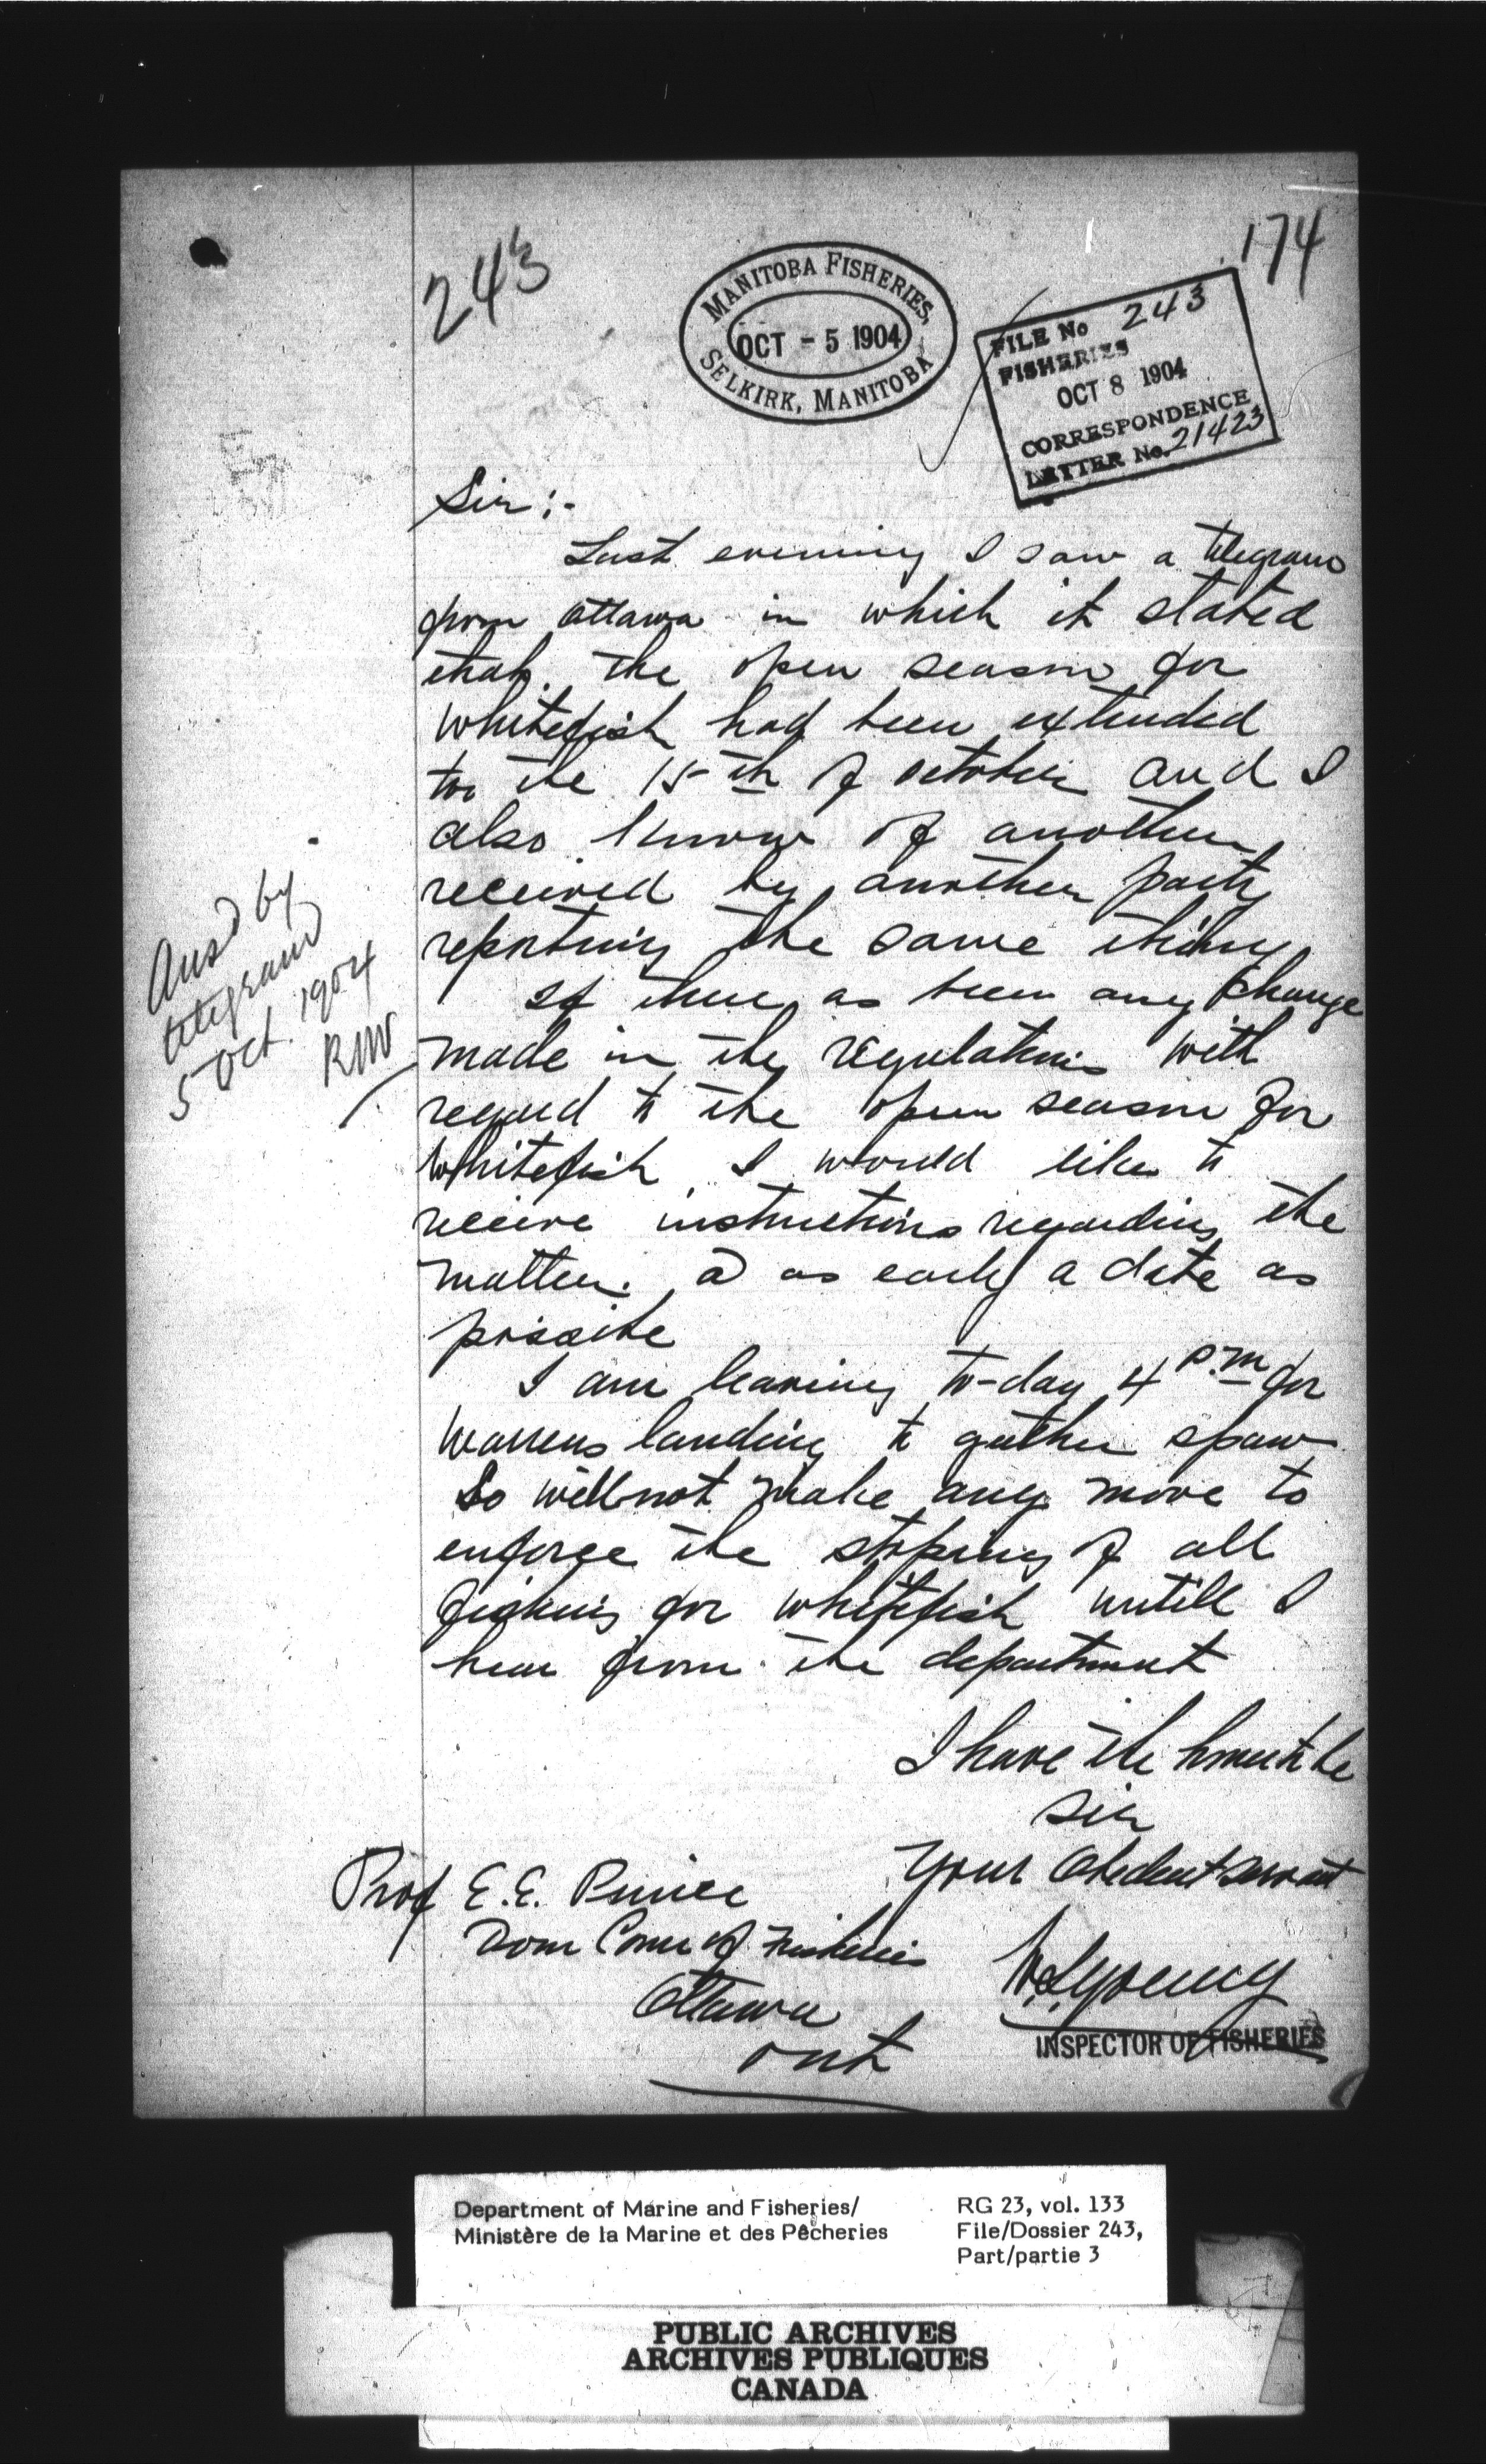 243
174
MANITOBA FISHERIES,
OCT - 5 1904
SELKIRK, MANITOBA
FILE No 243
FISHERIES
OCT 8 1904
CORRESPONDENCE
LETTER No. 21423
Sir :-
Last evening I saw a telegram
from Ottawa in which it stated
that the open season for
whitefish had been extended
to the 15th of October and I
also know of another
received by another party
reporting the same thing
If there as been any change
made in the regulations with
regard to the open season for
Whitefish I would like to
receive instructions regarding the
matter. at as early a date as
possible
I am leaving to-day 4 p.m for
Warrens landing to gather spawn
So will not make any move to
enforce the stoping of all
fishing for whitefish untill I
hear from the department
Ansd by
telegram
5 Oct. 1904
RNV
I have the honor to be
Sir
Your Obedient Servant
W.S. Young
INSPECTOR OF FISHERIES
Prof E.E. Prince
Dom Comr of Fisheries
Ottawa
Ont
Department of Marine and Fisheries/
Ministère de la Marine et des Pêcheries
RG 23, vol. 133
File/Dossier 243,
Part/partie 3
PUBLIC ARCHIVES
ARCHIVES PUBLIQUES
CANADA